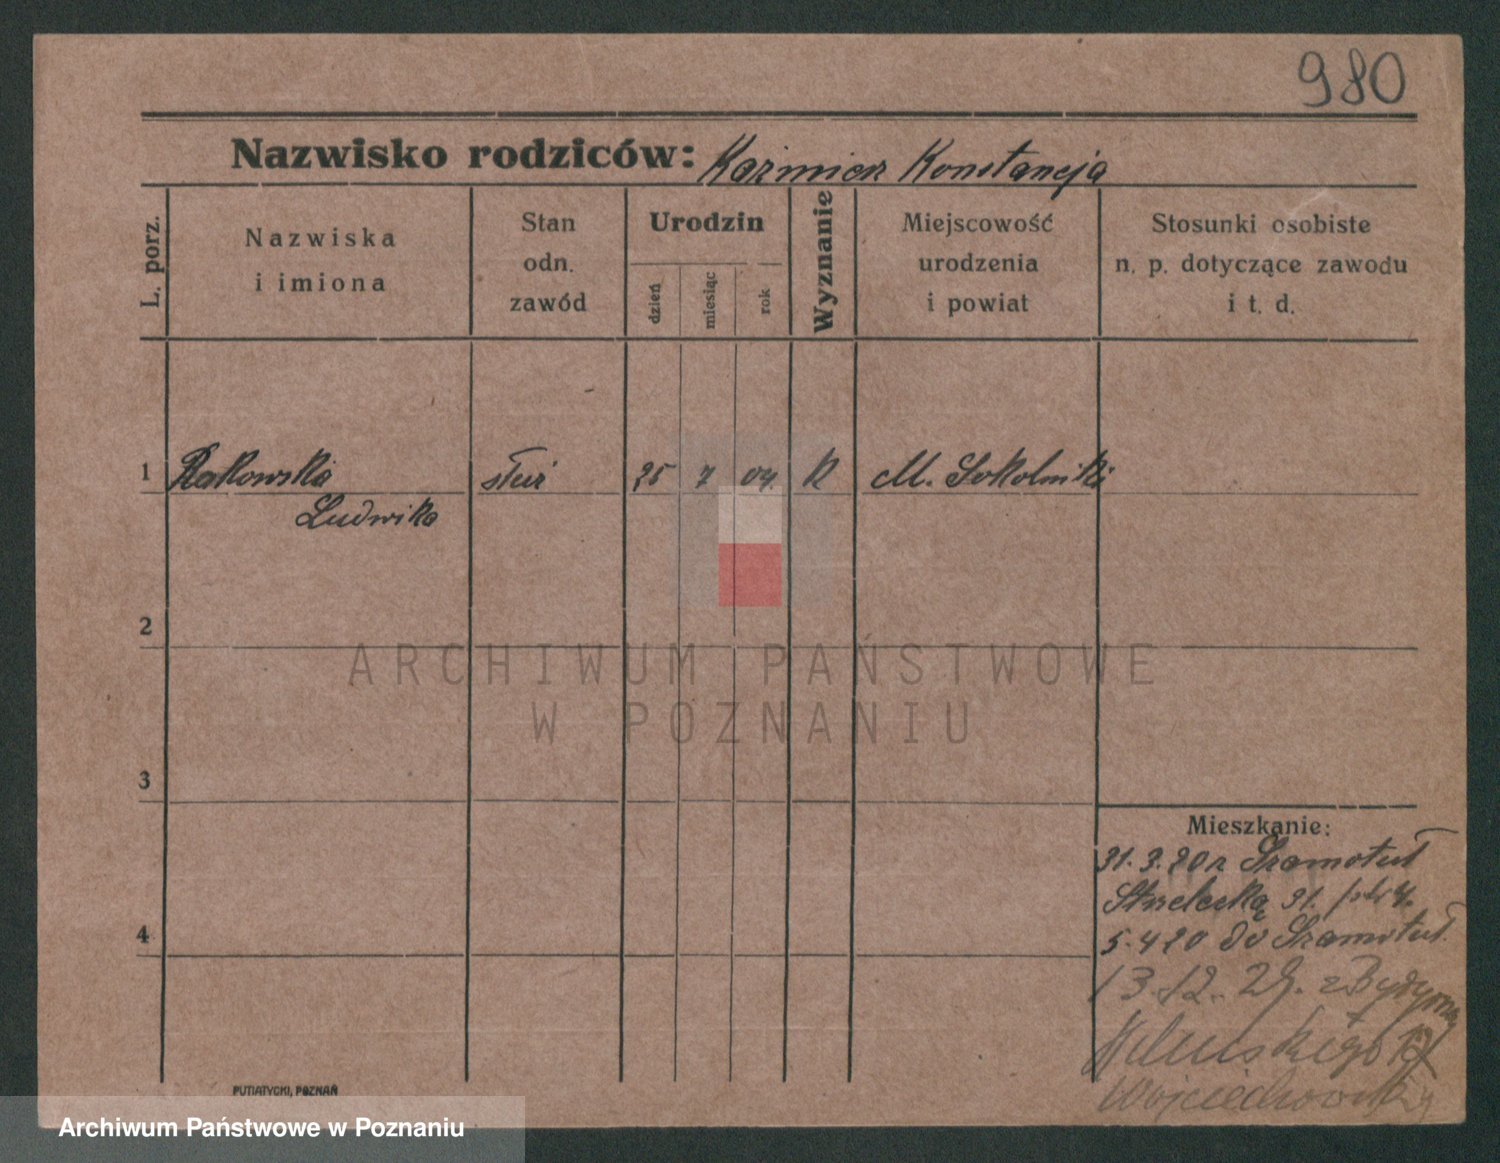 980
Nazwisko rodziców: Kazimierz Konstancja
L. porz.
Nazwiska
i imiona
Stan
odn.
zawód
Urodzin
dzień
miesiąc
rok
Wyznanie
Miejscowość
urodzenia
i powiat
Stosunki osobiste
n. p. dotyczące zawodu
i t. d.
1 Rakowska służ 25 7 04 K M. Sokolniki
Ludwika
2
ARCHIWUM PAŃSTWOWE
W POZNANIU
3
Mieszkanie:
31.3.20 z Szamotuł
Strzelecka 31.
4
5.4 20 do Szamotuł
13.12.29. z Bydgoszczy
Wojciechowski
PUTIATYCKI, POZNAŃ
Archiwum Państwowe w Poznaniu